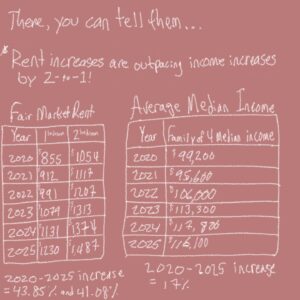 There, you can tell them...
* Rent increases are outpacing income increases
by 2-to-1!
Fair Market Rent
Year 1 bedroom 2 bedroom
2020 $855 $1054
2021 912 $1117
2022 $991 $1207
2023 $1079 $1313
2024 $1131 $1374
2025 $1230 $1,487
2020-2025 increase
= 43.85% and 41.08%
Average Median Income
Year Family of 4 median income
2020 $99,200
2021 $95,600
2022 $106,000
2023 $113,300
2024 $117,800
2025 $116,100
2020-2025 increase
= 17%